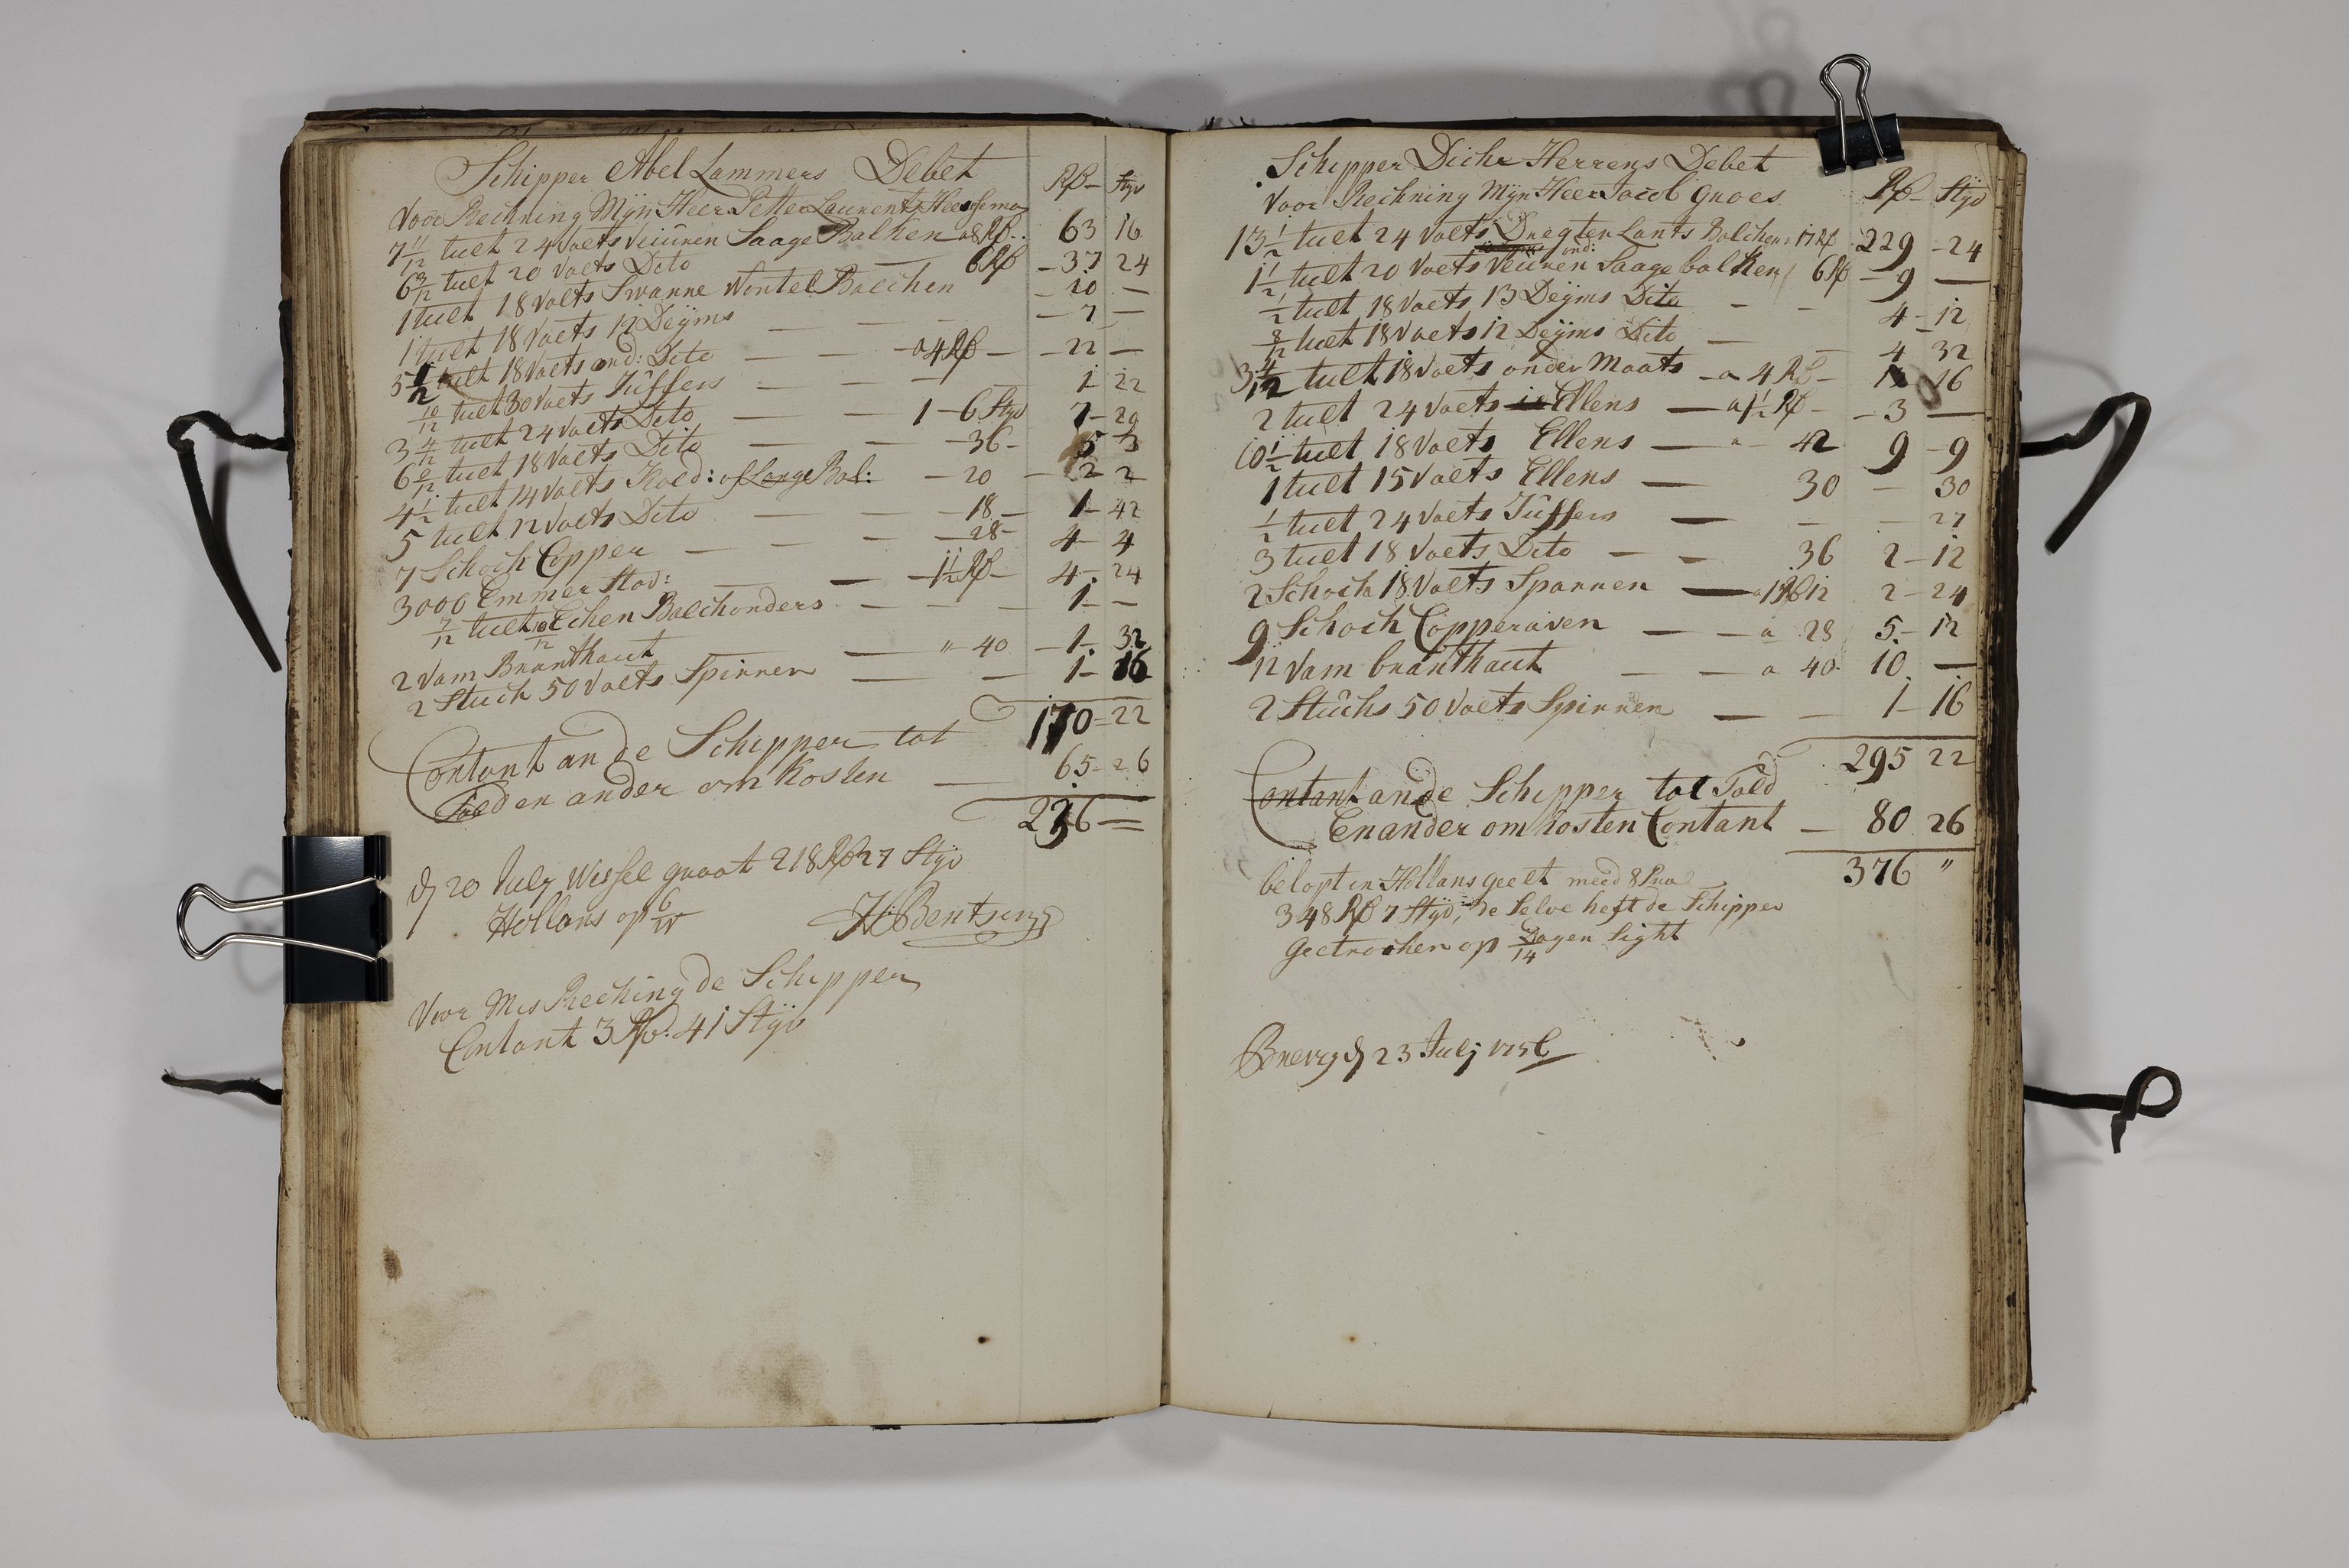 Schipper Abel Lammers Debet Rβ Styv
Voor Rechning Mijn Heer Petter Laurents
7 11/12 tult 24 Voets Veiuren Saage Balken a 8 Rβ 63 16
6 3/12 tult 20 Voets Dito 6 Rβ 37 24
1 tult 18 Voets Swanne Wortel Balchen 10 —
1 tult 18 Voets 12 Deijms 7 —
5 1/2 tult 18 Voets ond: Dito a 4 Rβ 22 —
10/12 tult 30 Voets Juffers 1 22
3 4/12 tult 24 Voets Dito 1 - 6 Styv 7 - 29
6 9/12 tult 18 Voets Dito 36 5 3
4 1/2 tult 14 Voets Kold: of Lange Bal: 20 2 2
5 tult 12 Voets Dito 18 1 - 42
7 Schoch Copper 28 4 4
3000 Emmer Stav: 1 1/2 Rβ 4 24
7/12 tult Echen Balchonders 1 —
2 Vam Branthout " 40 1 32
2 Stuch 50 Voets Spirren 1 - 16
170 = 22
Contant an de Schipper tot
Told en ander om Kosten 65 - 26
236 =
d 20 July Wissel groot 218 Rβ 27 Styv
Hollans op 6/W
Voor Mis Rechingde Schipper
Contant 3 Rβ. 41 Styv
Schipper Dichr Herrens Debet
Voor Rechning Mijn Heer Jacob Groes Rβ Styv
13 1/2 tult 24 Voets Dregter Lants Balchen a 17 Rβ 229 - 24
ond:
1 1/2 tult 20 Voets Veiuren Saage balken 6 Rβ 9 —
1/2 tult 18 Voets 13 Deijms Dito 4 - 12
8/12 tult 18 Voets 12 Deijms Dito 4 32
3 4/12 tult 18 Voets onder Maats a 4 Rβ 16
2 tult 24 Voets Ellens a 1 1/2 Rβ 3 —
10 1/2 tult 18 Voets Ellens a 42 9 - 9
1 tult 15 Voets Ellens 30 — 30
1/2 tult 24 Voets Juffers — 27
3 tult 18 Voets Dito 36 2 - 12
2 Schoch 18 Voets Sparren a 1 Rβ 12 2 - 24
9 Schoch Copperaven a 28 5 - 12
12 Vam branthaut a 40 10 —
2 Stuchs 50 Voets Spirren 1 - 16
295 22
Contant an de Schipper tot Told
En ander om kosten Contant 80 26
376 "
belopt in Hollans geelt meed 8 Pro
348 Rβ 7 Styv, de Selve heft de Schipper
getrochen op 14 Dagen Sight
Brevig d 23 Julj 1756